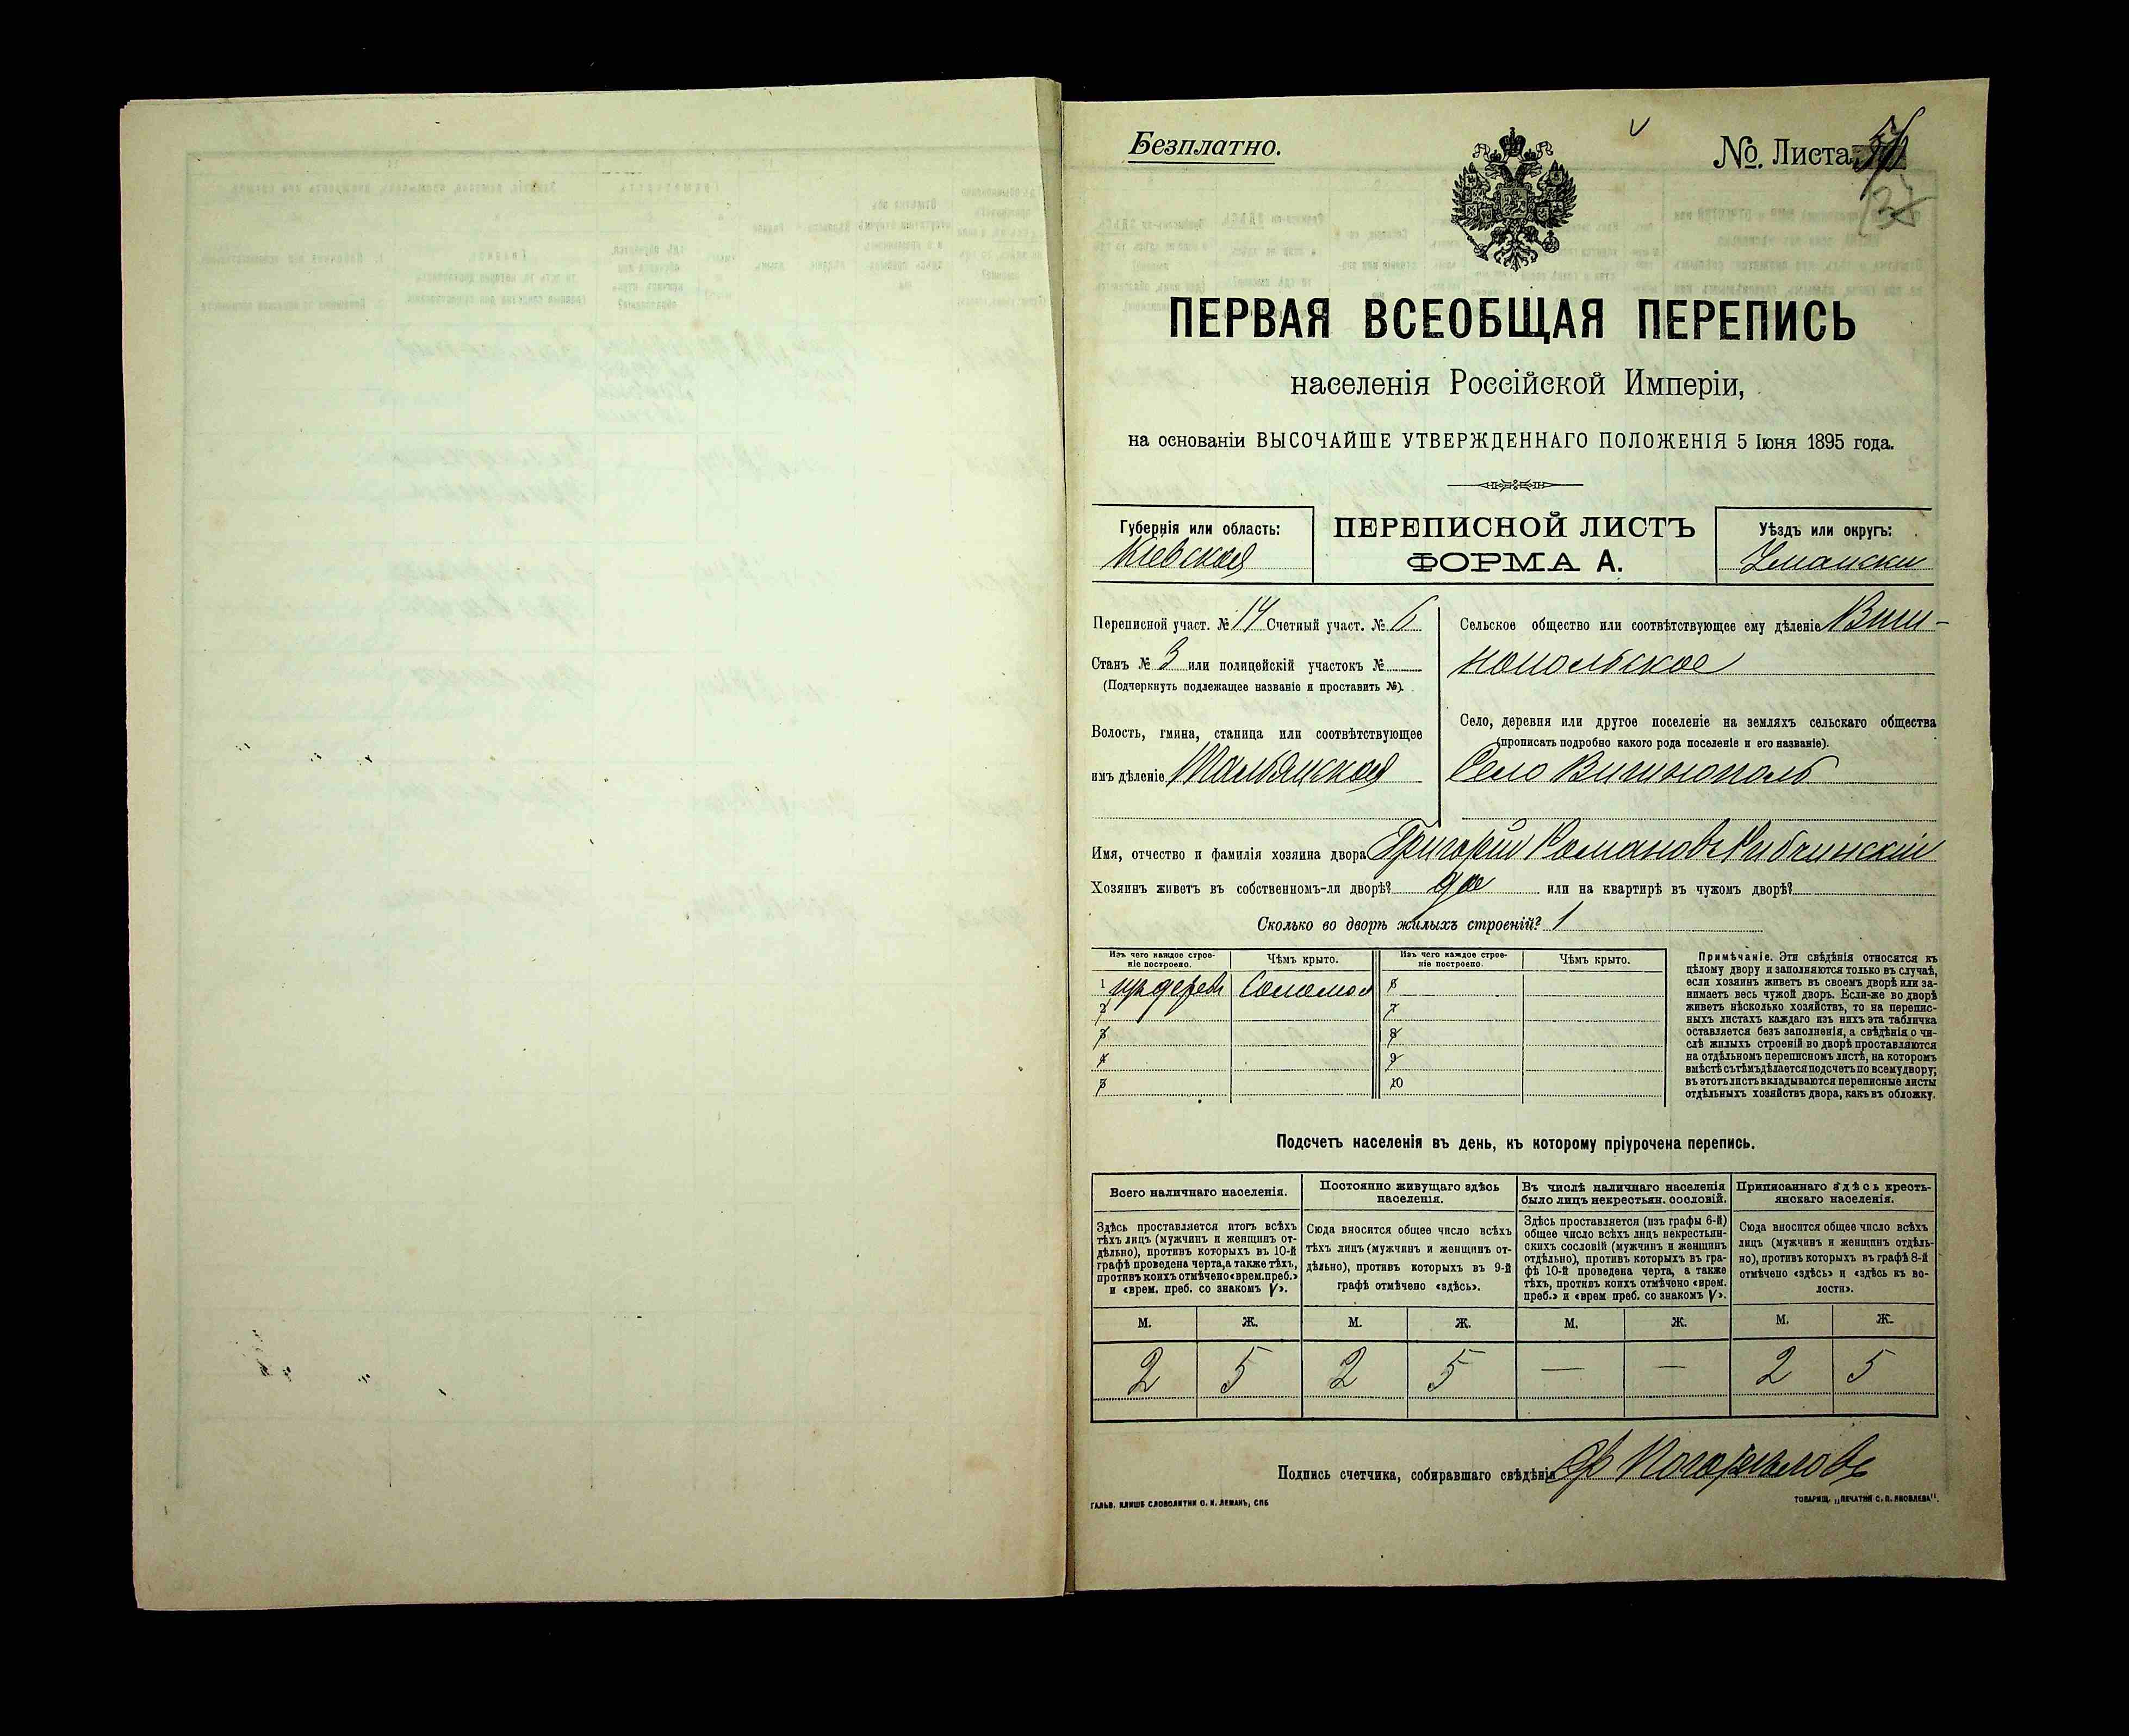 Безплатно.
№. Листа
ПЕРВАЯ ВСЕОБЩАЯ ПЕРЕПИСЬ
населенія Россійской Имперіи,
на основаніи ВЫСОЧАЙШЕ УТВЕРЖДЕННАГО ПОЛОЖЕНІЯ 5 Іюня 1895 года.
Губернія или область:
Кіевская
ПЕРЕПИСНОЙ ЛИСТЪ
ФОРМА А.
Уѣздъ или округъ:
Умански
Переписной участ. № 14 Счетный участ. № 6
Станъ № 3 или полицейскій участокъ №
(Подчеркнуть подлежащее названіе и проставить №).
Волость, гмина, станица или соотвѣтствующее
имъ дѣленіе Тальянская
Сельское общество или соотвѣтствующее ему дѣленіе Виш-
нопольское
Село, деревня или другое поселеніе на земляхъ сельскаго общества
(прописать подробно какого рода поселеніе и его названіе).
Село Вишнополь
Имя, отчество и фамилія хозяина двора Григорій Романовъ Рибчинскій
Хозяинъ живетъ въ собственномъ-ли дворѣ? да или на квартирѣ въ чужомъ дворѣ?
Сколько во дворѣ жилыхъ строеній? 1
Изъ чего каждое строе-
ніе построено.
Чѣмъ крыто.
Изъ чего каждое строе-
ніе построено.
Чѣмъ крыто.
1 изъ дерева Соломой 6
2 7
3 8
4 9
5 10
Примѣчаніе. Эти свѣдѣнія относятся къ
цѣлому двору и заполняются только въ случаѣ,
если хозяинъ живетъ въ своемъ дворѣ или за-
нимаетъ весь чужой дворъ. Если-же во дворѣ
живетъ нѣсколько хозяйствъ, то на перепис-
ныхъ листахъ каждаго изъ нихъ эта табличка
оставляется безъ заполненія, а свѣдѣнія о чи-
слѣ жилыхъ строеній во дворѣ проставляются
на отдѣльномъ переписномъ листѣ, на которомъ
вмѣстѣ съ тѣмъ дѣлается подсчетъ по всему двору;
въ этотъ листъ вкладываются переписные листы
отдѣльныхъ хозяйствъ двора, какъ въ обложку.
Подсчетъ населенія въ день, къ которому пріурочена перепись.
Всего наличнаго населенія.
Здѣсь проставляется итогъ всѣхъ
тѣхъ лицъ (мужчинъ и женщинъ от-
дѣльно), противъ которыхъ въ 10-й
графѣ проведена черта, а также тѣхъ,
противъ коихъ отмѣчено «врем. преб.»
и «врем. преб. со знакомъ V».
Постоянно живущаго здѣсь
населенія.
Сюда вносится общее число всѣхъ
тѣхъ лицъ (мужчинъ и женщинъ от-
дѣльно), противъ которыхъ въ 9-й
графѣ отмѣчено «здѣсь».
Въ числѣ наличнаго населенія
было лицъ некрестьян. сословій.
Здѣсь проставляется (изъ графы 6-й)
общее число всѣхъ лицъ некрестьян-
скихъ сословій (мужчинъ и женщинъ
отдѣльно), противъ которыхъ въ гра-
фѣ 10-й проведена черта, а также
тѣхъ, противъ коихъ отмѣчено «врем.
преб.» и «врем преб. со знакомъ V».
Приписаннаго здѣсь кресть-
янскаго населенія.
Сюда вносится общее число всѣхъ
лицъ (мужчинъ и женщинъ отдѣль-
но), противъ которыхъ въ графѣ 8-й
отмѣчено «здѣсь» и «здѣсь къ во-
лости».
М. Ж. М. Ж. М. Ж. М. Ж.
2 5 2 5 — — 2 5
Подпись счетчика, собиравшаго свѣдѣнія Погорѣловъ
ГАЛЬВ. КЛИШЕ СЛОВОЛИТНИ О. И. ЛЕМАНЪ, СПБ
ТОВАРИЩ. „ПЕЧАТНЯ С. П. ЯКОВЛЕВА".